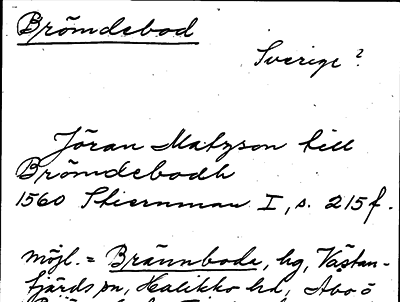 Brömdebod
Sverige ?
Jöran Matzson till
Brömdebodh
1560 Stiernman I, s. 215 f.
möjl. = Brännboda, hg, Västan-
fjärds pn, Halikko hd, Åbo ö